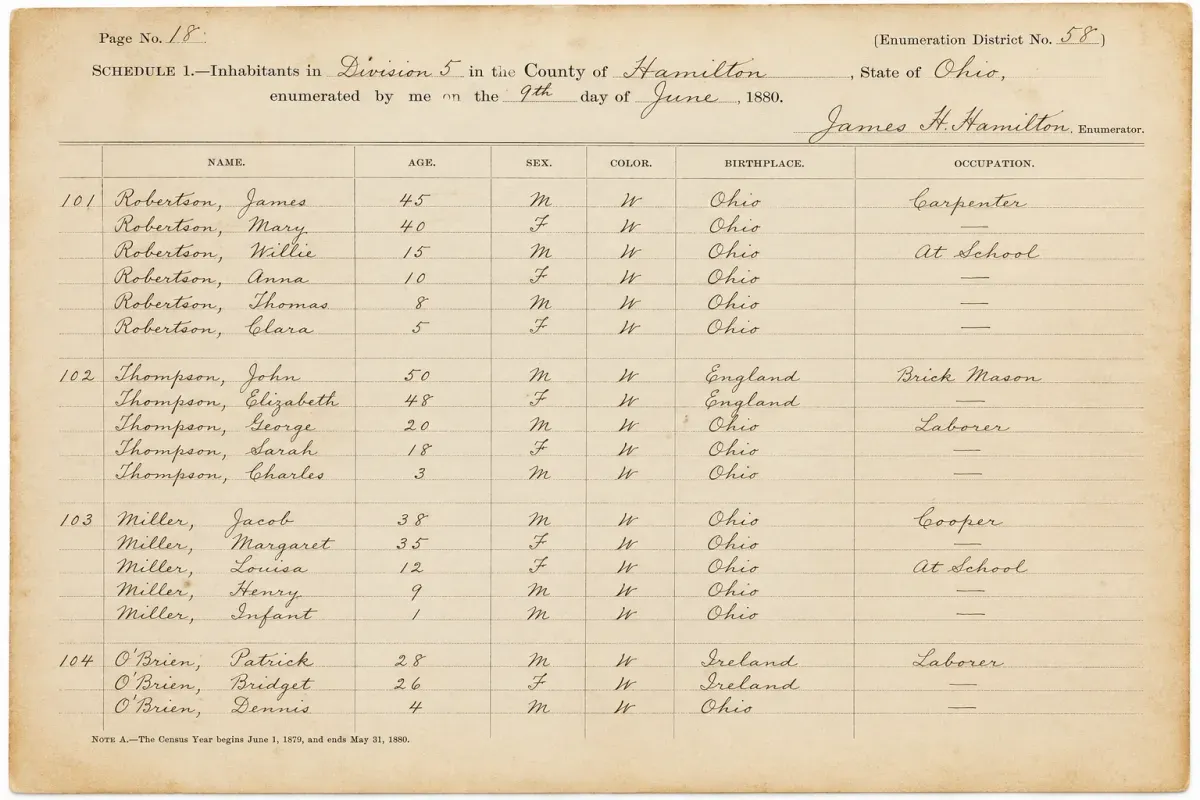 Page No. 18.
(Enumeration District No. 58)
SCHEDULE 1.—Inhabitants in Division 5 in the County of Hamilton, State of Ohio,
enumerated by me on the 9th day of June, 1880.
James H. Hamilton, Enumerator.
NAME. AGE. SEX. COLOR. BIRTHPLACE. OCCUPATION.
101 Robertson, James 45 M W Ohio Carpenter
Robertson, Mary 40 F W Ohio —
Robertson, Willie 15 M W Ohio At School
Robertson, Anna 10 F W Ohio —
Robertson, Thomas 8 M W Ohio —
Robertson, Clara 5 F W Ohio —
102 Thompson, John 50 M W England Brick Mason
Thompson, Elizabeth 48 F W England —
Thompson, George 20 M W Ohio Laborer
Thompson, Sarah 18 F W Ohio —
Thompson, Charles 3 M W Ohio —
103 Miller, Jacob 38 M W Ohio Cooper
Miller, Margaret 35 F W Ohio —
Miller, Louisa 12 F W Ohio At School
Miller, Henry 9 M W Ohio —
Miller, Infant 1 M W Ohio —
104 O'Brien, Patrick 28 M W Ireland Laborer
O'Brien, Bridget 26 F W Ireland —
O'Brien, Dennis 4 M W Ohio —
NOTE A.—The Census Year begins June 1, 1879, and ends May 31, 1880.